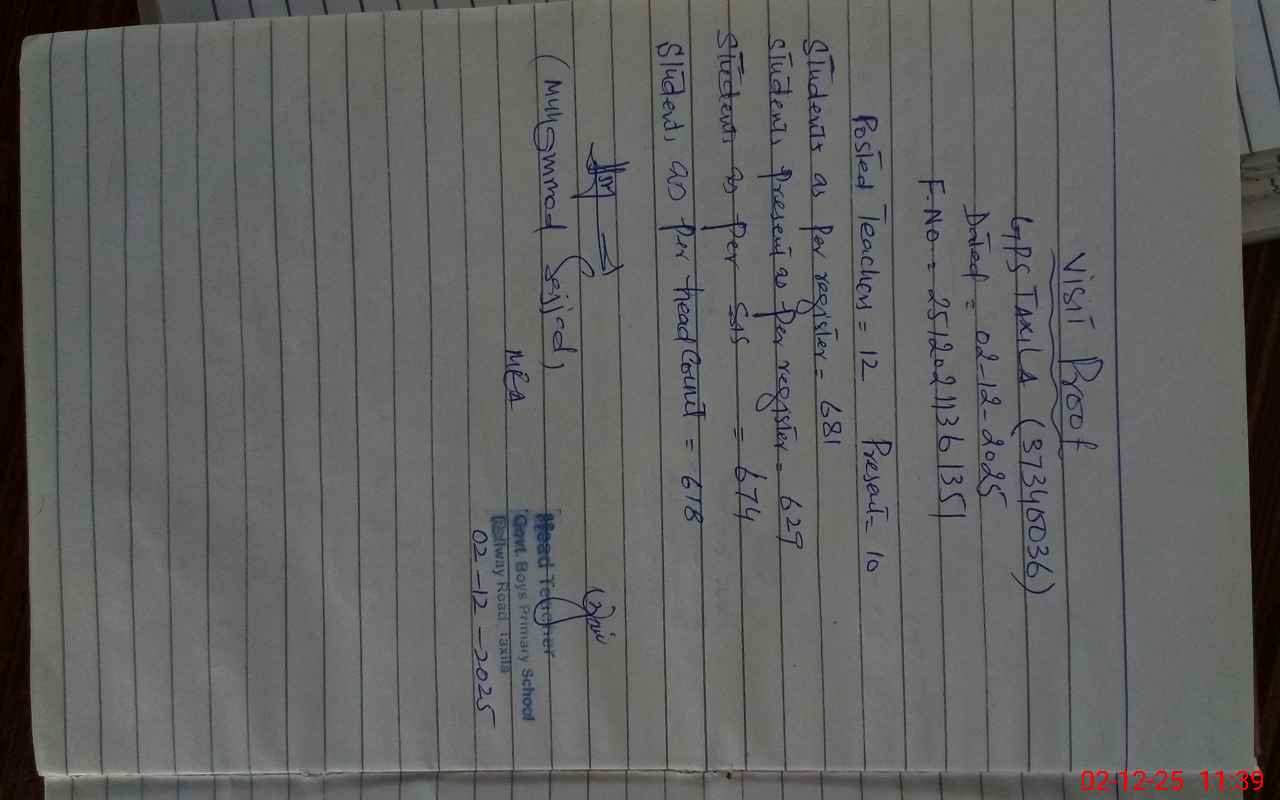 Visit Proof
GPS TAXILA (37340036)
Dated = 02-12-2025
F.No = 25120211361351
Posted Teachers = 12 Present = 10
Students as Per register = 681
Students Present as Per register = 629
Students as Per SIS = 674
Students as Per head Count = 618
(Muhammad Sajjad)
MEA
Head Teacher
Govt. Boys Primary School
Railway Road Taxila
02-12-2025
02-12-25 11:39